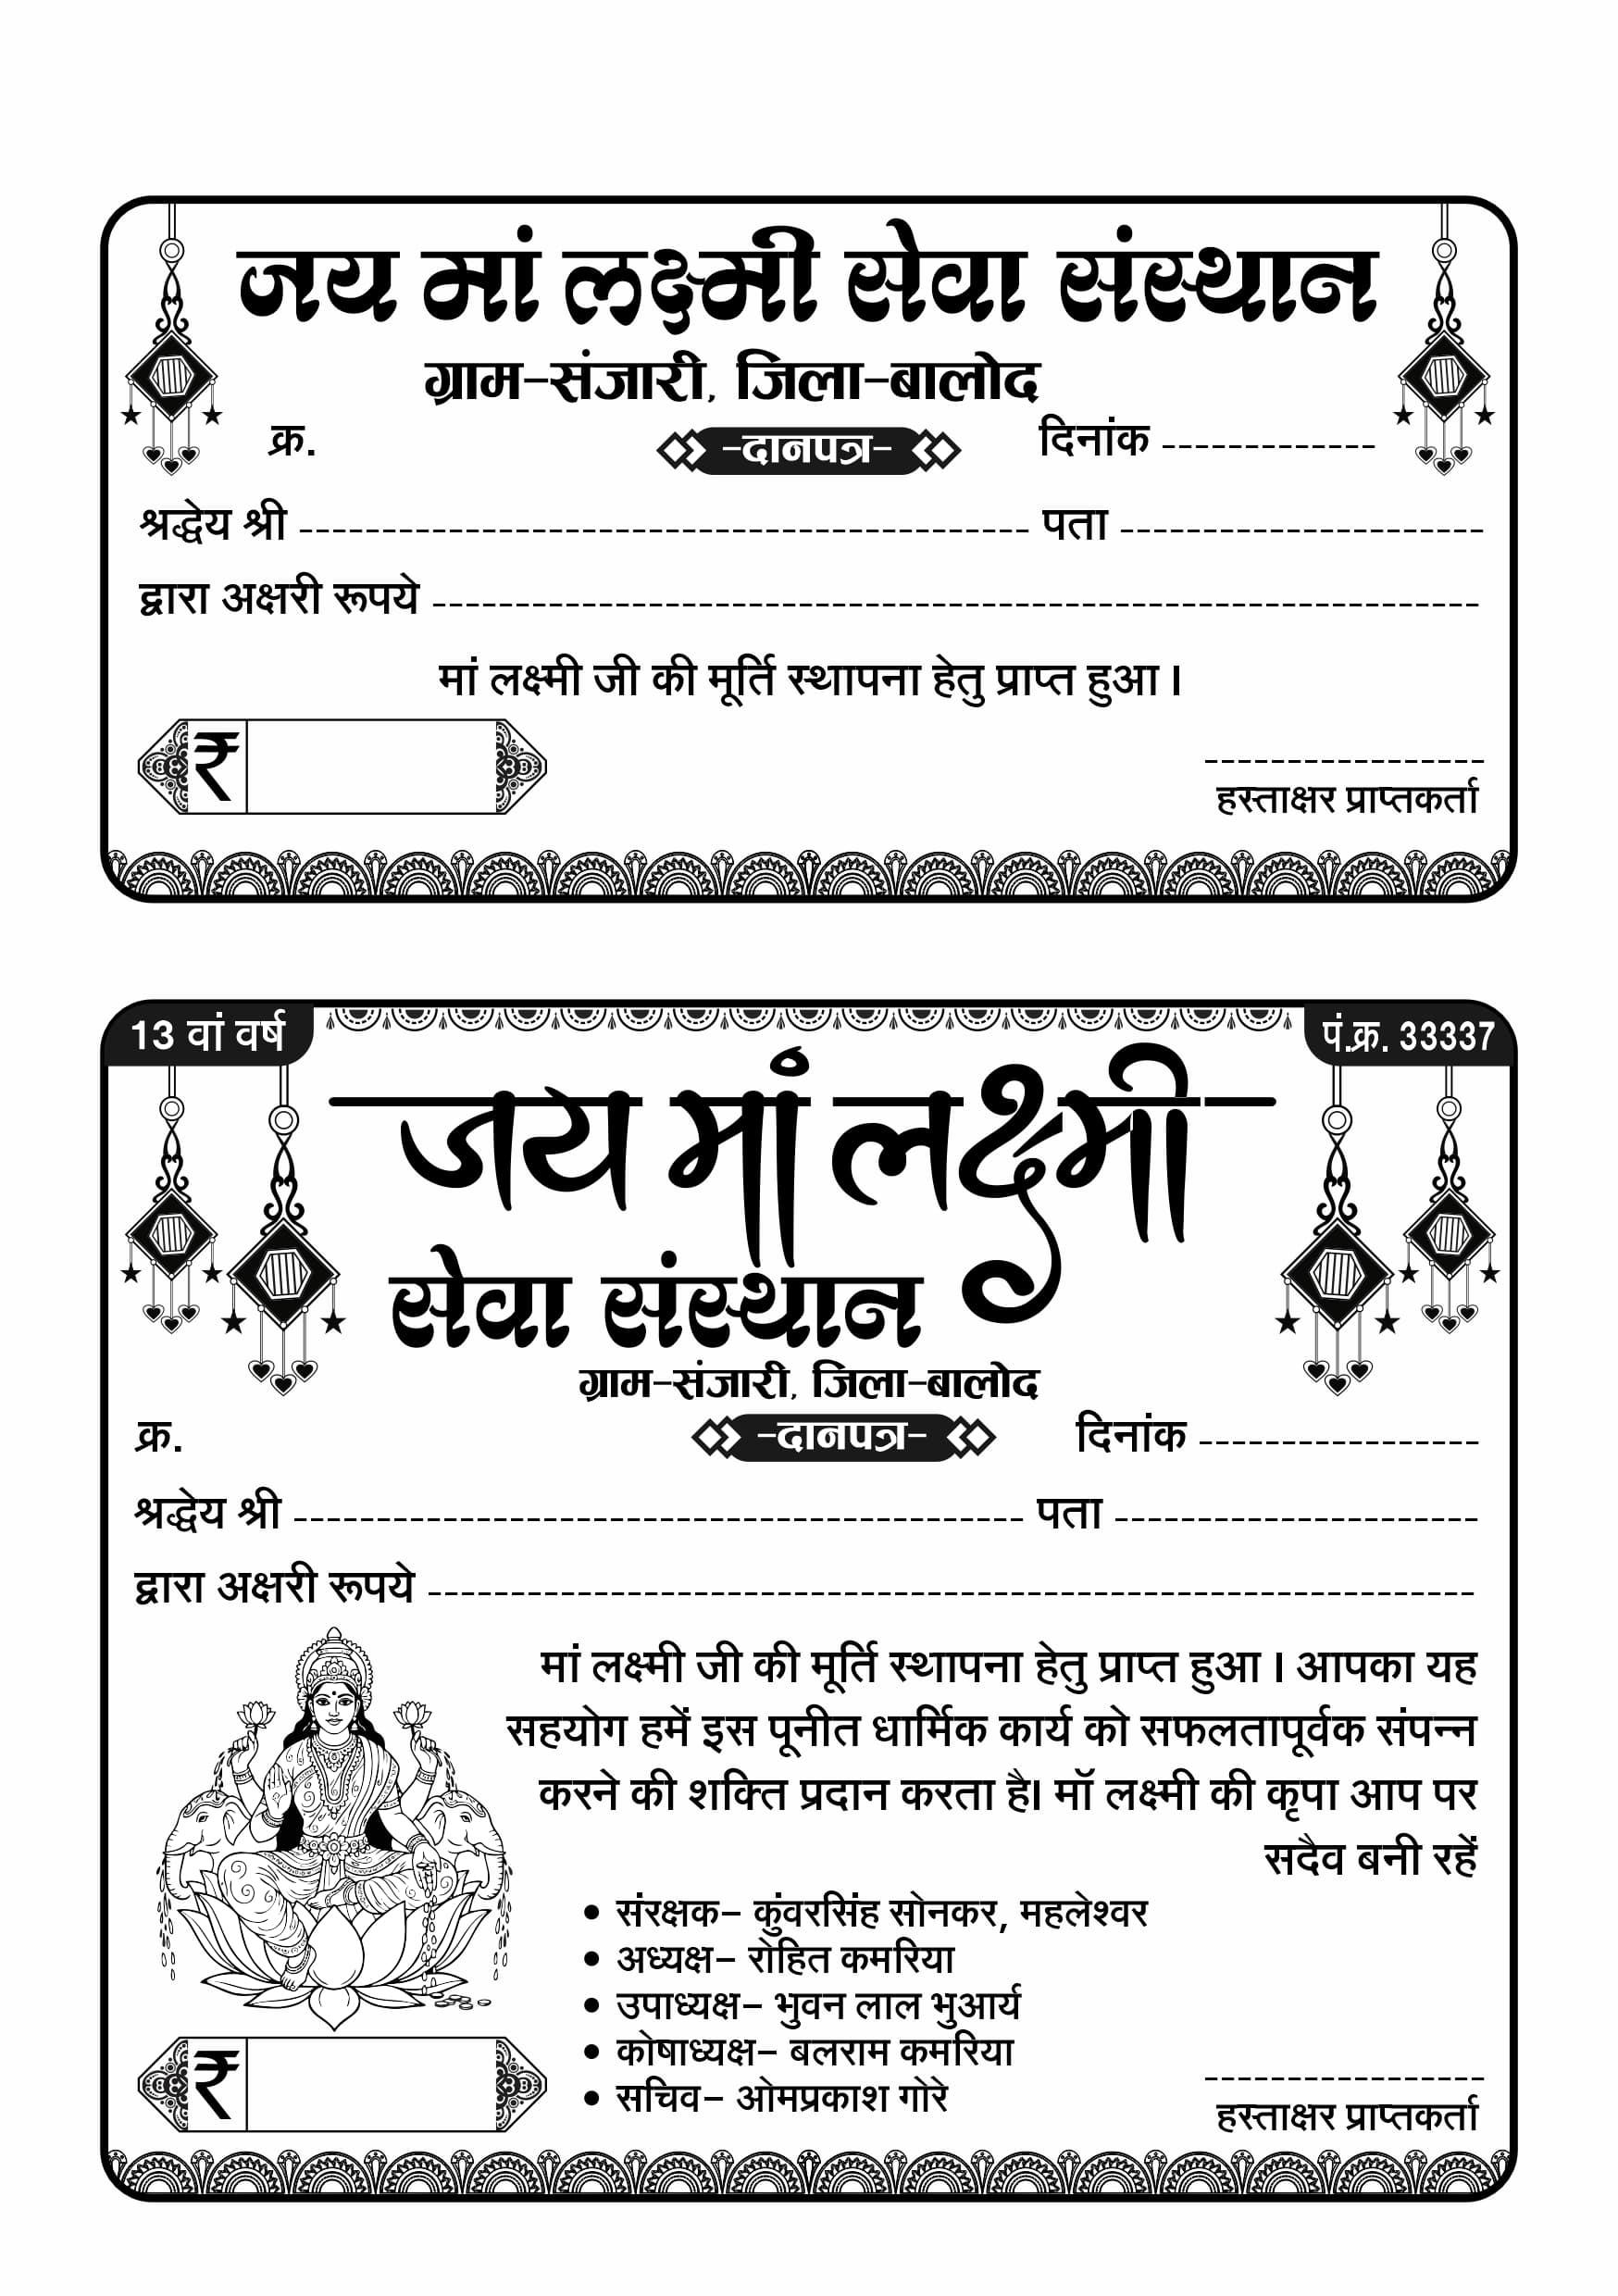 जय मां लक्ष्मी सेवा संस्थान
ग्राम-संजारी, जिला-बालोद
क्र. -दानपत्र- दिनांक -------------
श्रद्धेय श्री -------------------------------------------- पता ----------------------
द्वारा अक्षरी रूपये ---------------------------------------------------------------
मां लक्ष्मी जी की मूर्ति स्थापना हेतु प्राप्त हुआ ।
₹
-----------------
हस्ताक्षर प्राप्तकर्ता
13 वां वर्ष पं.क्र. 33337
जय मां लक्ष्मी
सेवा संस्थान
ग्राम-संजारी, जिला-बालोद
क्र. -दानपत्र- दिनांक -----------------
श्रद्धेय श्री -------------------------------------------- पता ----------------------
द्वारा अक्षरी रूपये ---------------------------------------------------------------
मां लक्ष्मी जी की मूर्ति स्थापना हेतु प्राप्त हुआ । आपका यह
सहयोग हमें इस पूनीत धार्मिक कार्य को सफलतापूर्वक संपन्न
करने की शक्ति प्रदान करता है। मॉ लक्ष्मी की कृपा आप पर
सदैव बनी रहें
• संरक्षक– कुंवरसिंह सोनकर, महलेश्वर
• अध्यक्ष– रोहित कमरिया
• उपाध्यक्ष– भुवन लाल भुआर्य
• कोषाध्यक्ष– बलराम कमरिया
• सचिव– ओमप्रकाश गोरे
₹
-----------------
हस्ताक्षर प्राप्तकर्ता